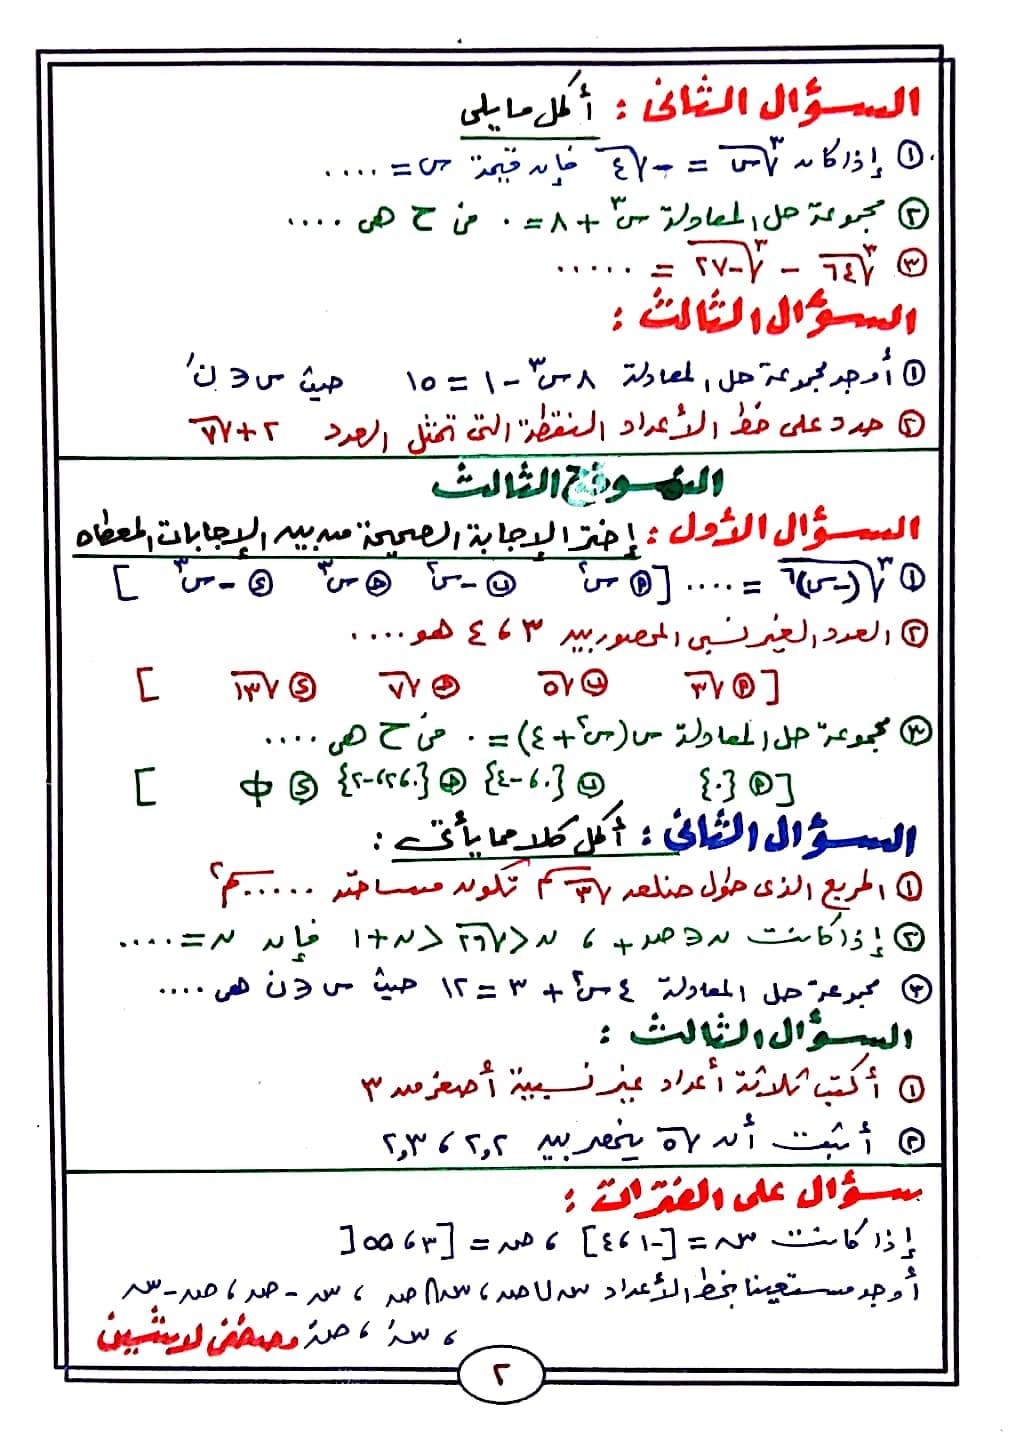 السؤال الثانى : أكمل ما يلى
① إذا كان ∛س = -√٤ فإن قيمة س = ....
② مجموعة حل المعادلة س³ + ٨ = ٠ فى ح هى ....
③ ∛٦٤ - ∛-٢٧ = .....
السؤال الثالث :
① أوجد مجموعة حل المعادلة ٨ س³ - ١ = ١٥ حيث س ∈ نَ
② حدد على خط الأعداد النقطة التى تمثل العدد ٢ + √٧
النموذج الثالث
السؤال الأول : إختر الإجابة الصحيحة من بين الإجابات المعطاه
① ∛(-س)⁶ = .... [ Ⓟ س² ⓑ -س² ⓙ س³ ⓓ -س³ ]
② العدد الغير نسبى المحصور بين ٣ ، ٤ هو ....
[ Ⓟ √٣ ⓑ √٥ ⓙ √٧ ⓓ √١٣ ]
③ مجموعة حل المعادلة س (س² + ٤) = ٠ فى ح هى ....
[ Ⓟ {٠} ⓑ {٠ ، -٤} ⓙ {٠ ، ٢ ، -٢} ⓓ ϕ ]
السؤال الثانى : أكمل كلا مما يأتى :
① المربع الذى طول ضلعه √٣ سم تكون مساحته ..... سم²
② إذا كانت ن ∈ ص+ ، ن < √٢٦ < ن + ١ فإن ن = ....
③ مجموعة حل المعادلة ٤ س² + ٣ = ١٢ حيث س ∈ ن هى ....
السؤال الثالث :
① أكتب ثلاثة أعداد غير نسبية أصغر من ٣
② أثبت أن √٥ ينحصر بين ٢,٢ ، ٢,٣
سؤال على الفترات :
إذا كانت سـ = [-١ ، ٤] ، صـ = [٣ ، ∞[
أوجد مستعينا بخط الأعداد سـ ∪ صـ ، سـ ∩ صـ ، سـ - صـ ، صـ - سـ
، سـَ ، صـَ مصطفى لاشين
٢